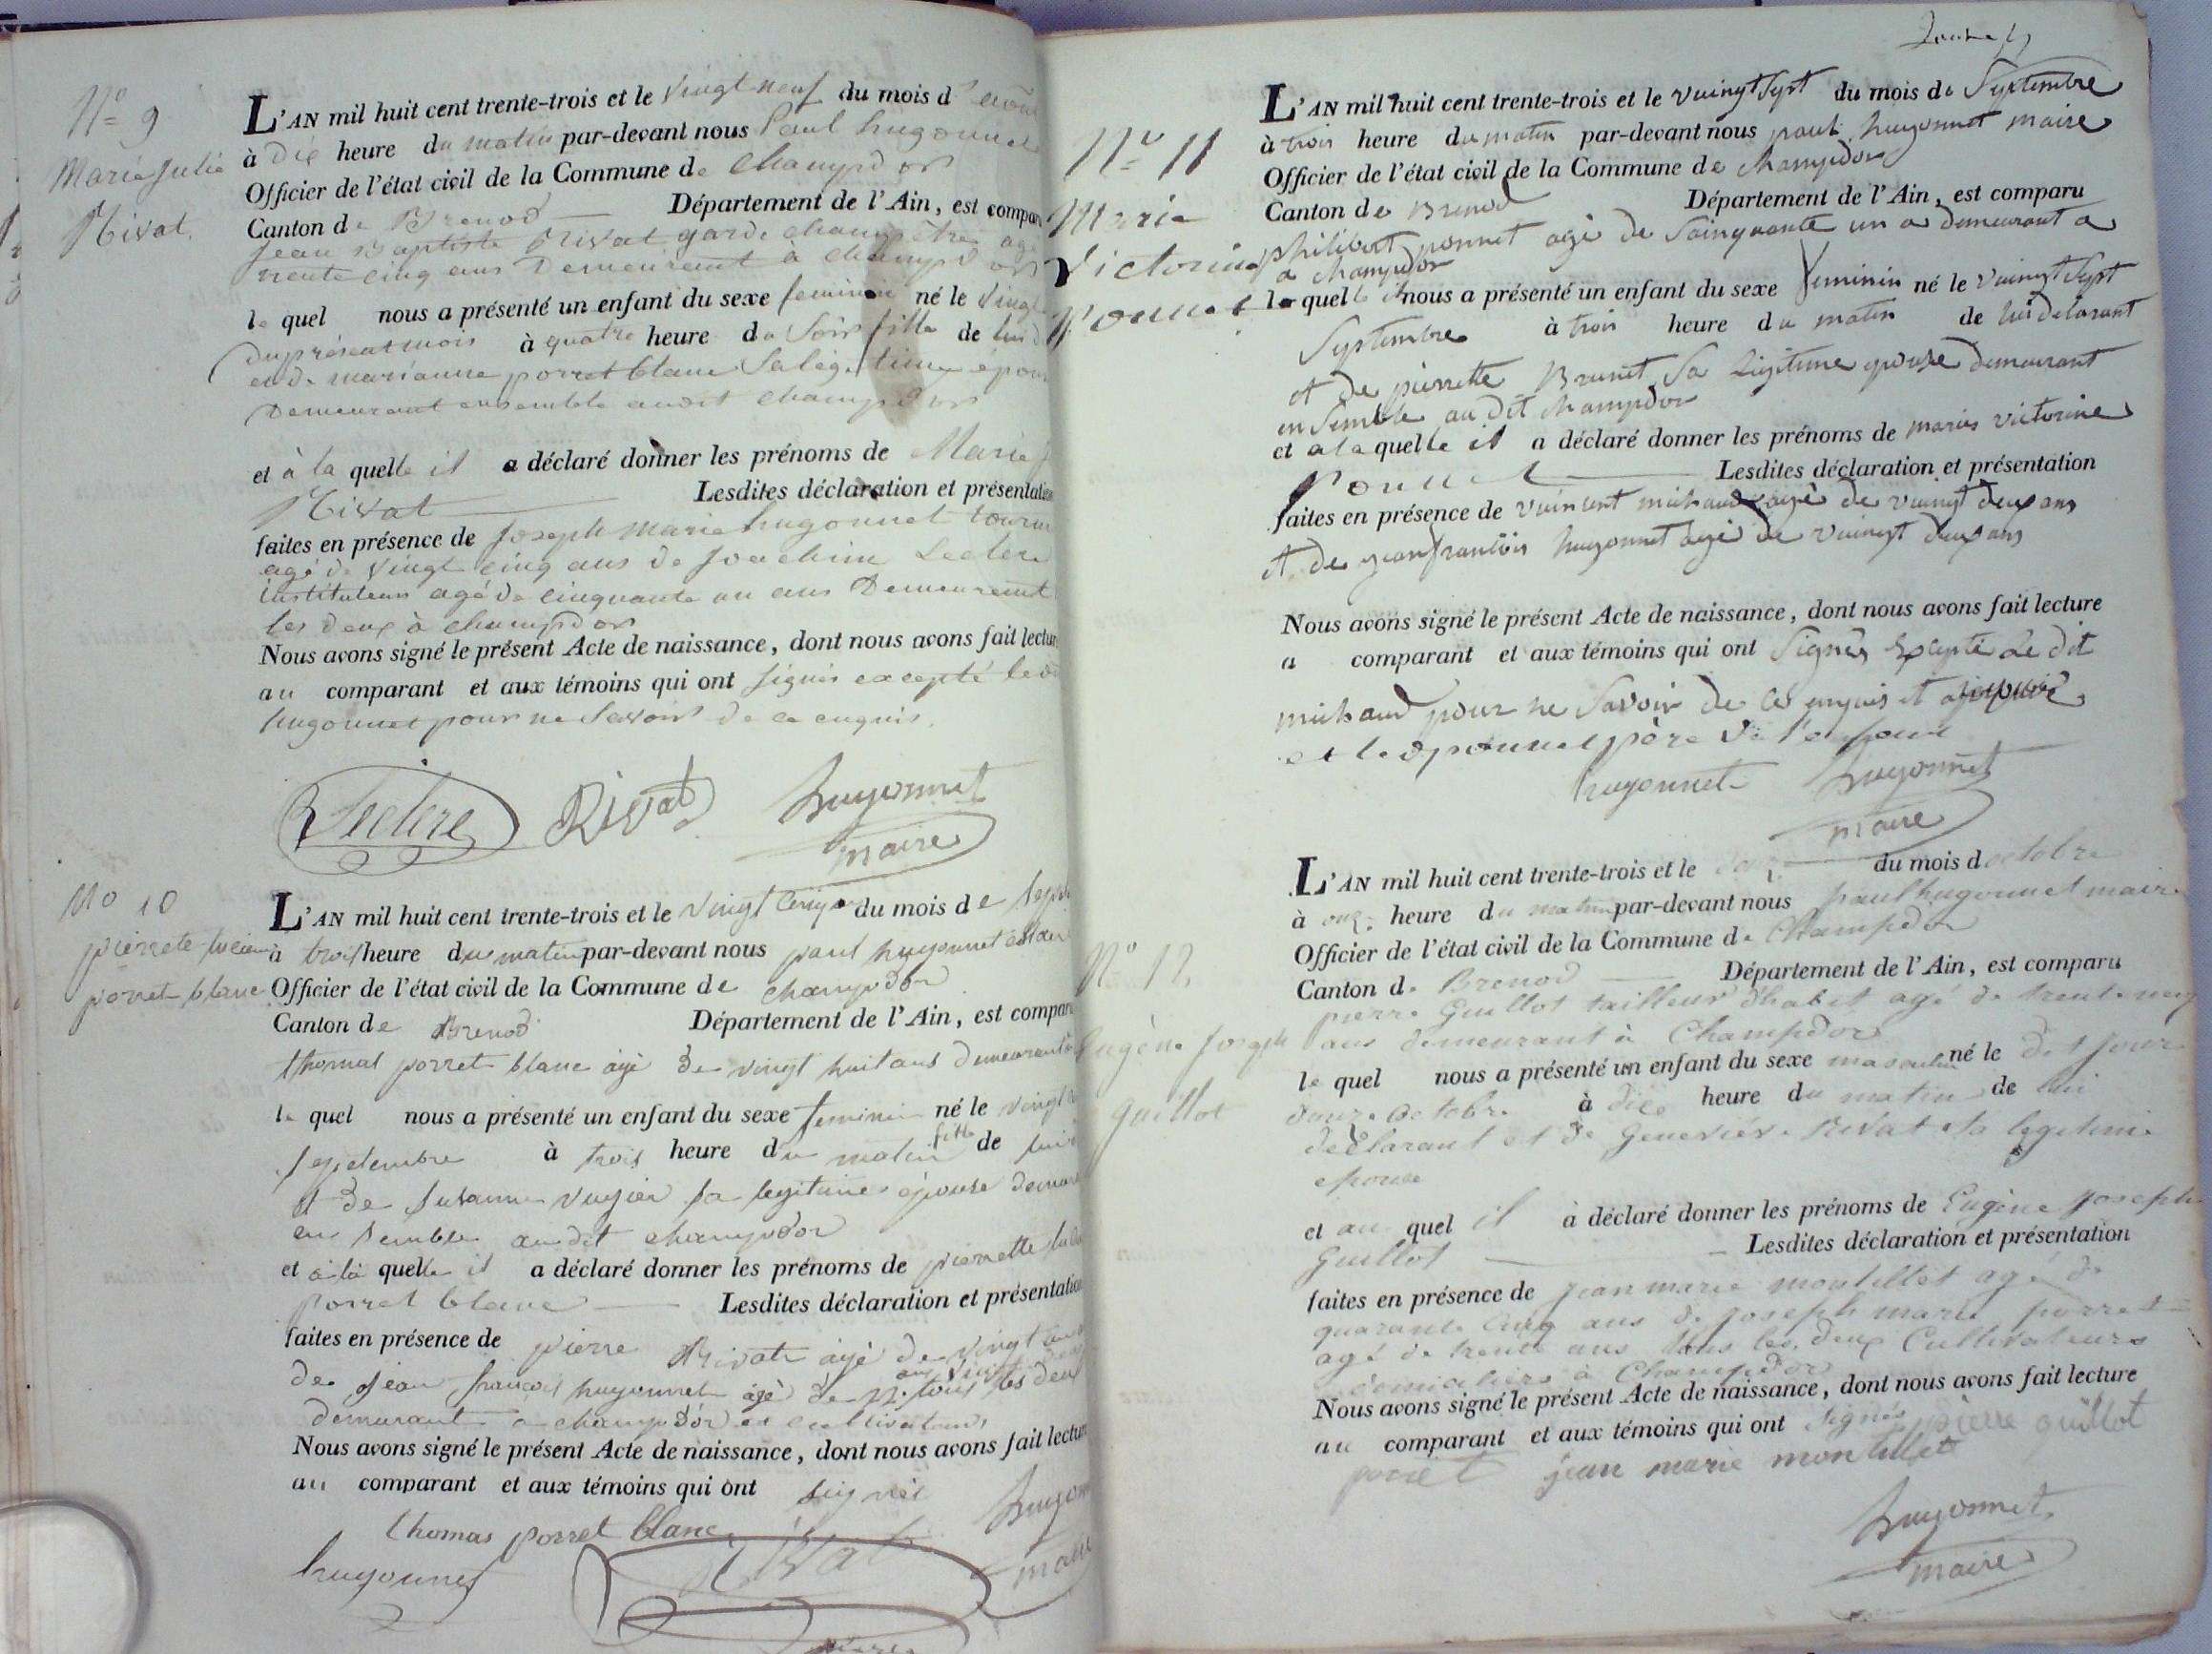 N° 9
Marie Julie
Rivat
L'AN mil huit cent trente-trois et le vingt neuf du mois d'
à dix heure du matin par-devant nous Paul hugonnet
Officier de l'état civil de la Commune de champdor
Canton de Brenod Département de l'Ain, est compar
Jean Baptiste Rivat garde champêtre agé
trente cinq ans Demeurant à champdor
le quel nous a présenté un enfant du sexe feminin né le vingt
du présent mois à quatre heure du Soir fille de lui d
et de marianne porret blanc Sa légitime épou
Demeurant ensemble audit champdor
et à la quelle il a déclaré donner les prénoms de Marie J
Rivat Lesdites déclaration et présentation
faites en présence de Joseph Marie hugonnet
agé de vingt cinq ans de Joachim Leclere
instituteur agé de cinquante un ans Demeurant
les deux à champdor
Nous avons signé le présent Acte de naissance, dont nous avons fait lecture
au comparant et aux témoins qui ont signés excepté le dit
hugonnet pour ne Savoir de ce enquis.
Leclere Rivat hugonnet
maire
N° 10
pierrete
porret blanc
L'AN mil huit cent trente-trois et le vingt cinq du mois de sept
à trois heure du matin par-devant nous paul hugonnet
Officier de l'état civil de la Commune de champdor
Canton de Brenod Département de l'Ain, est compar
thomas porret blanc agé de vingt huit ans demeurant à
le quel nous a présenté un enfant du sexe feminin né le vingt
septembre à trois heure du matin fille de lui
et de susanne sa legitime épouse demeur
en semble audit champdor
et à la quelle il a déclaré donner les prénoms de pierrette
porret blanc Lesdites déclaration et présentation
faites en présence de pierre Rivat agé de vingt
de jean françois hugonnet agé de 22 ans tous les deux
demurant a champdor et cultivateurs
Nous avons signé le présent Acte de naissance, dont nous avons fait lecture
au comparant et aux témoins qui ont signés
thomas porret blanc
hugonnet Rivat hugonnet
maire
N° 11
Marie
Victorine
Ponnet
L'AN mil huit cent trente-trois et le vuingt Sept du mois de Septembre
à trois heure du matin par-devant nous paul hugonnet maire
Officier de l'état civil de la Commune de champdor
Canton de Brenod Département de l'Ain, est comparu
philibert ponnet agé de Sainquante un a demeurant a
a champdor
la quelle il nous a présenté un enfant du sexe feminin né le vuingt Sept
Septembre à trois heure du matin de lui delarant
et de pierrette Brunet Sa Ligitime epouse demeurant
en Semble au dit champdor
et a la quelle il a déclaré donner les prénoms de marie victorine
Ponnet Lesdites déclaration et présentation
faites en présence de vuincent michaud agé de vuingt deux ans
et de jean francois hugonnet agé de vuingt deux ans
Nous avons signé le présent Acte de naissance, dont nous avons fait lecture
a comparant et aux témoins qui ont Signés Excepté Le dit
michaud pour ne Savoir de ce enquis et
et le d ponnet père de l'enfant
hugonnet hugonnet
maire
N° 12
Eugène Joseph
Guillot
L'AN mil huit cent trente-trois et le douze du mois d octobre
à onze heure du matin par-devant nous paul hugonnet maire
Officier de l'état civil de la Commune de Champdor
Canton de Brenod Département de l'Ain, est comparu
pierre Guillot tailleur d'habit agé de trente neuf
ans demeurant à Champdor
le quel nous a présenté un enfant du sexe masculin né le dit jour
douze octobre à dix heure du matin de lui
déclarant et de Geneviève Rivat sa legitime
epouse
et au quel il à déclaré donner les prénoms de Eugène Joseph
Guillot Lesdites déclaration et présentation
faites en présence de jean marie montillet agé de
quarante cinq ans de joseph marie porret
agé de trente ans tous les deux Cultivateurs
domiciliers à Champdor
Nous avons signé le présent Acte de naissance, dont nous avons fait lecture
au comparant et aux témoins qui ont signés pierre guillot
porret jean marie montillet
hugonnet
maire